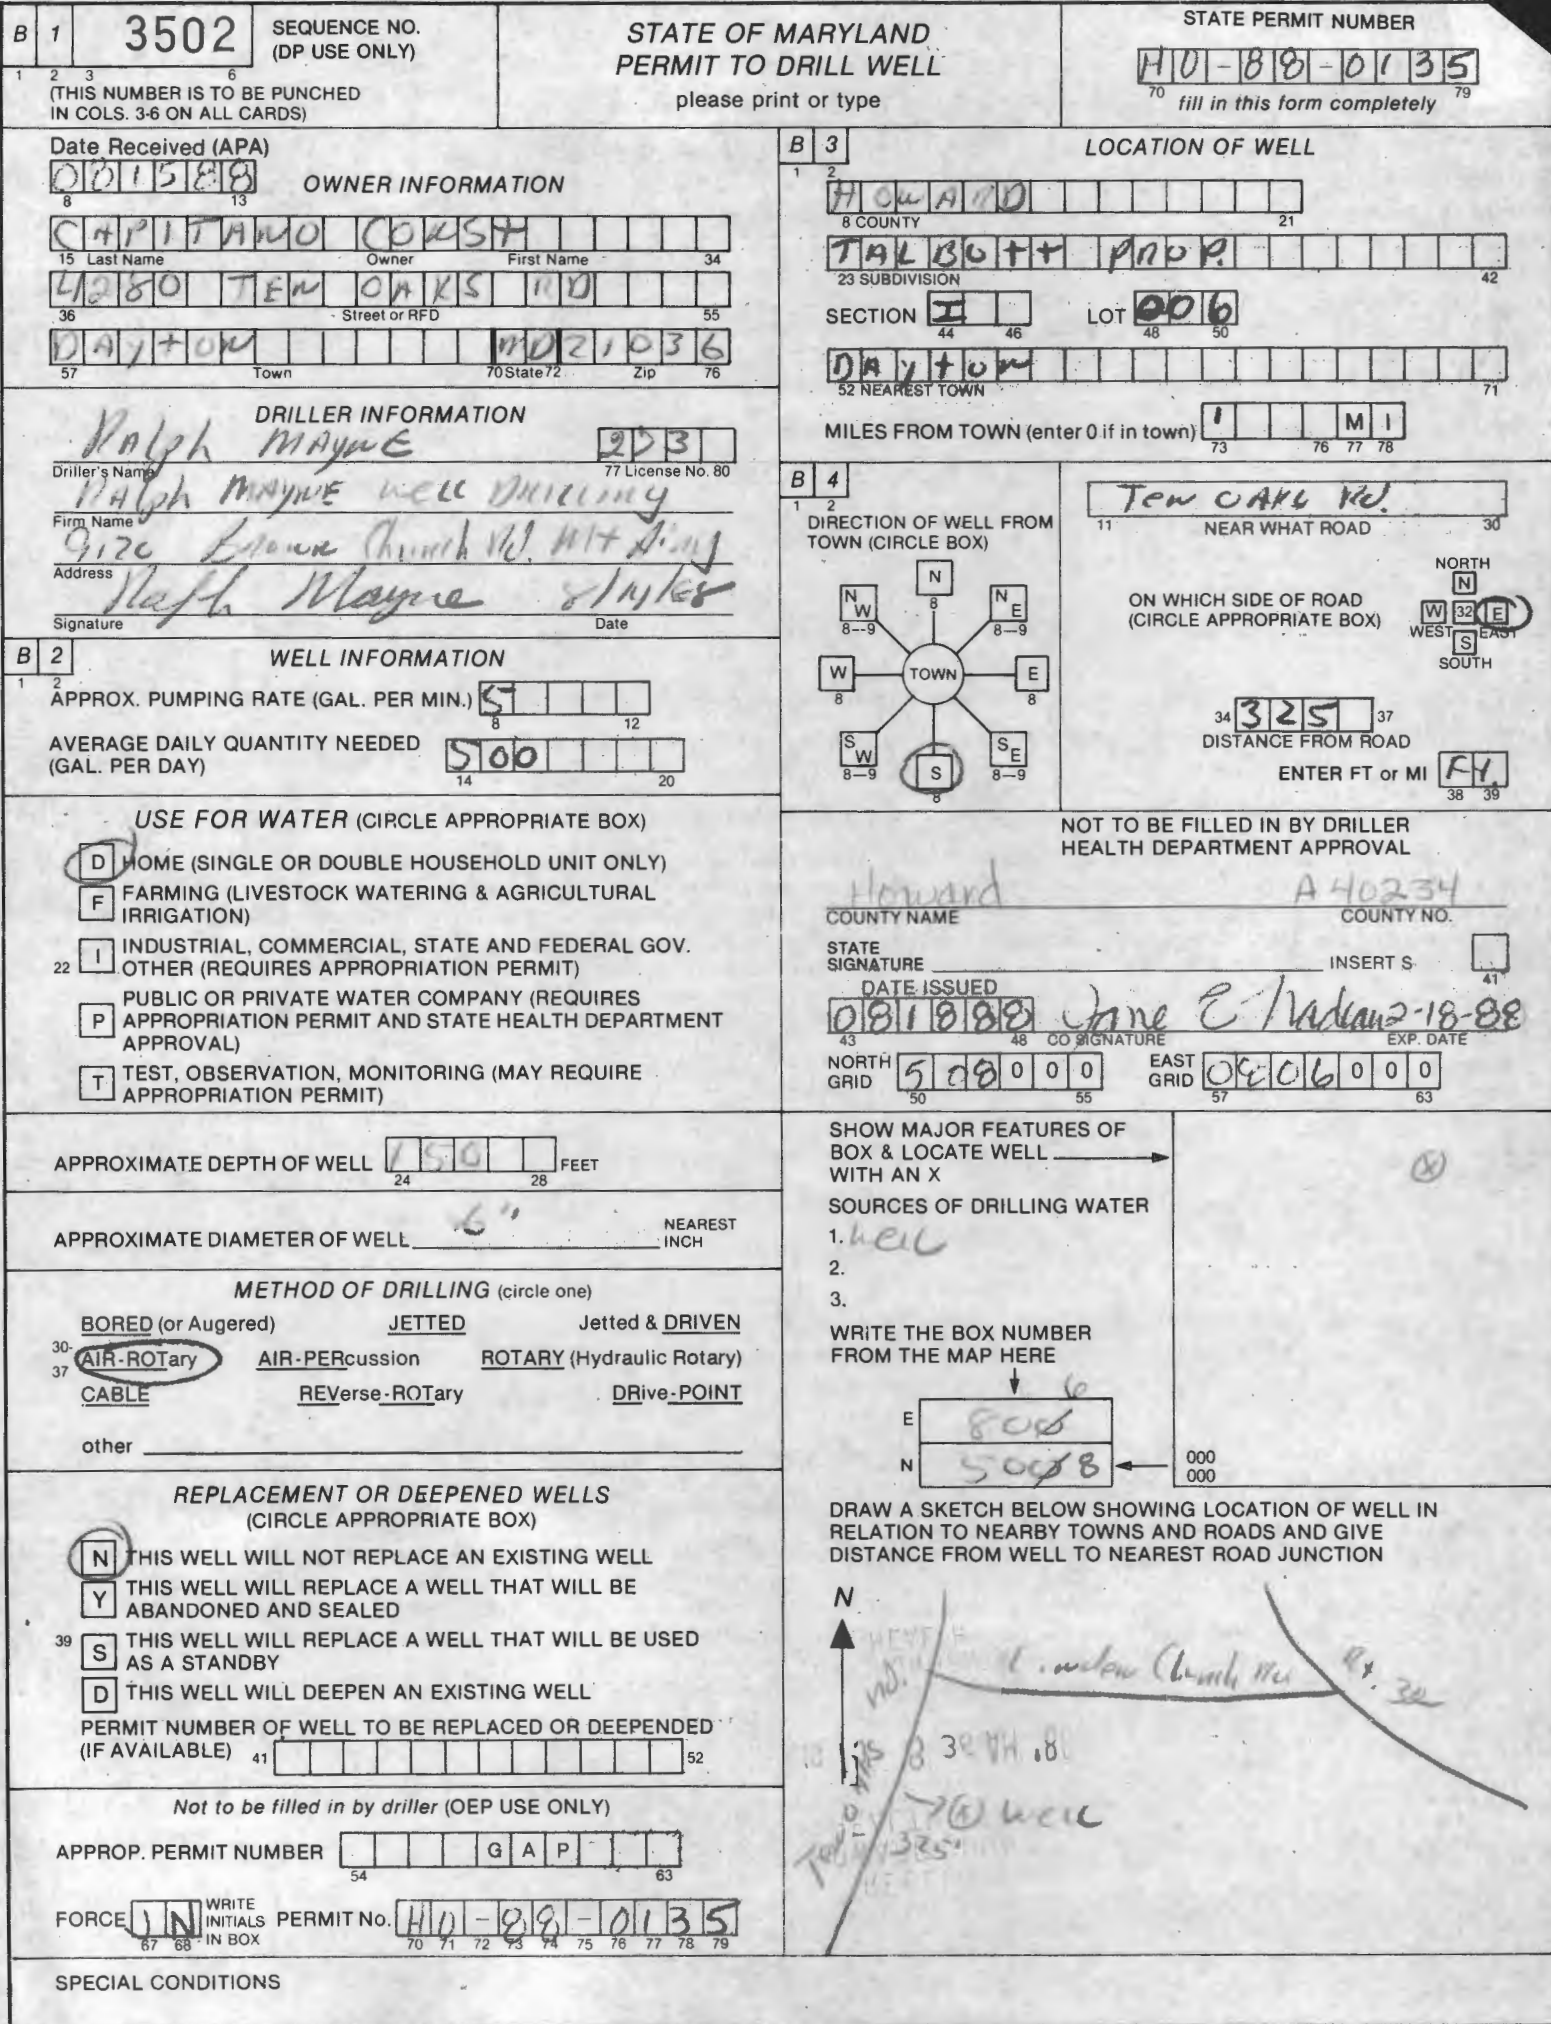 B 1 3502 SEQUENCE NO.
(DP USE ONLY)
1 2 3 6
(THIS NUMBER IS TO BE PUNCHED
IN COLS. 3-6 ON ALL CARDS)
STATE OF MARYLAND
PERMIT TO DRILL WELL
please print or type
STATE PERMIT NUMBER
HO-88-0135
70 79
fill in this form completely
Date Received (APA)
081588
8 13
OWNER INFORMATION
CAPITANO CONST
15 Last Name Owner First Name 34
4280 TEN OAKS RD
36 Street or RFD 55
DAYTON MD 21036
57 Town 70 State 72 Zip 76
DRILLER INFORMATION
Ralph MAYNE 273
Driller's Name 77 License No. 80
Ralph MAYNE Well Drilling
Firm Name
9120 Brown Church Rd. Mt Airy
Address
Ralph Mayne
Signature Date
B 2 WELL INFORMATION
1 2
APPROX. PUMPING RATE (GAL. PER MIN.) 5
8 12
AVERAGE DAILY QUANTITY NEEDED
(GAL. PER DAY) 500
14 20
USE FOR WATER (CIRCLE APPROPRIATE BOX)
D HOME (SINGLE OR DOUBLE HOUSEHOLD UNIT ONLY)
F FARMING (LIVESTOCK WATERING & AGRICULTURAL
IRRIGATION)
22 I INDUSTRIAL, COMMERCIAL, STATE AND FEDERAL GOV.
OTHER (REQUIRES APPROPRIATION PERMIT)
P PUBLIC OR PRIVATE WATER COMPANY (REQUIRES
APPROPRIATION PERMIT AND STATE HEALTH DEPARTMENT
APPROVAL)
T TEST, OBSERVATION, MONITORING (MAY REQUIRE
APPROPRIATION PERMIT)
APPROXIMATE DEPTH OF WELL 150 FEET
24 28
APPROXIMATE DIAMETER OF WELL 6" NEAREST
INCH
METHOD OF DRILLING (circle one)
BORED (or Augered) JETTED Jetted & DRIVEN
30-37 AIR-ROTary AIR-PERcussion ROTARY (Hydraulic Rotary)
CABLE REVerse-ROTary DRive-POINT
other
REPLACEMENT OR DEEPENED WELLS
(CIRCLE APPROPRIATE BOX)
N THIS WELL WILL NOT REPLACE AN EXISTING WELL
Y THIS WELL WILL REPLACE A WELL THAT WILL BE
ABANDONED AND SEALED
39 S THIS WELL WILL REPLACE A WELL THAT WILL BE USED
AS A STANDBY
D THIS WELL WILL DEEPEN AN EXISTING WELL
PERMIT NUMBER OF WELL TO BE REPLACED OR DEEPENDED
(IF AVAILABLE) 41 52
Not to be filled in by driller (OEP USE ONLY)
APPROP. PERMIT NUMBER GAP
54 63
FORCE IN WRITE
INITIALS
IN BOX
67 68
PERMIT No. HO-88-0135
70 71 72 73 74 75 76 77 78 79
SPECIAL CONDITIONS
B 3 LOCATION OF WELL
1 2
HOWARD
8 COUNTY 21
TALBOTT PROP.
23 SUBDIVISION 42
SECTION I LOT 006
44 46 48 50
DAYTON
52 NEAREST TOWN 71
MILES FROM TOWN (enter 0 if in town) 1 MI
73 76 77 78
B 4
1 2
DIRECTION OF WELL FROM
TOWN (CIRCLE BOX)
N
8
NW NE
8-9 8-9
W TOWN E
8 8
SW SE
8-9 8-9
S
8
Ten OAKS Rd.
11 NEAR WHAT ROAD 30
ON WHICH SIDE OF ROAD
(CIRCLE APPROPRIATE BOX)
NORTH
N
W 32 E
WEST EAST
S
SOUTH
34 325 37
DISTANCE FROM ROAD
ENTER FT or MI Ft.
38 39
NOT TO BE FILLED IN BY DRILLER
HEALTH DEPARTMENT APPROVAL
Howard A 40234
COUNTY NAME COUNTY NO.
STATE
SIGNATURE INSERT S
41
DATE ISSUED
081888 Jane E. 2-18-88
43 48 CO SIGNATURE EXP. DATE
NORTH
GRID 508000
50 55
EAST
GRID 0806000
57 63
SHOW MAJOR FEATURES OF
BOX & LOCATE WELL
WITH AN X
X
SOURCES OF DRILLING WATER
1. Well
2.
3.
WRITE THE BOX NUMBER
FROM THE MAP HERE
6
E 800
N 5008
000
000
DRAW A SKETCH BELOW SHOWING LOCATION OF WELL IN
RELATION TO NEARBY TOWNS AND ROADS AND GIVE
DISTANCE FROM WELL TO NEAREST ROAD JUNCTION
N
Linden Church Rd
Rt. 32
Ten Oaks Rd.
Well
325'